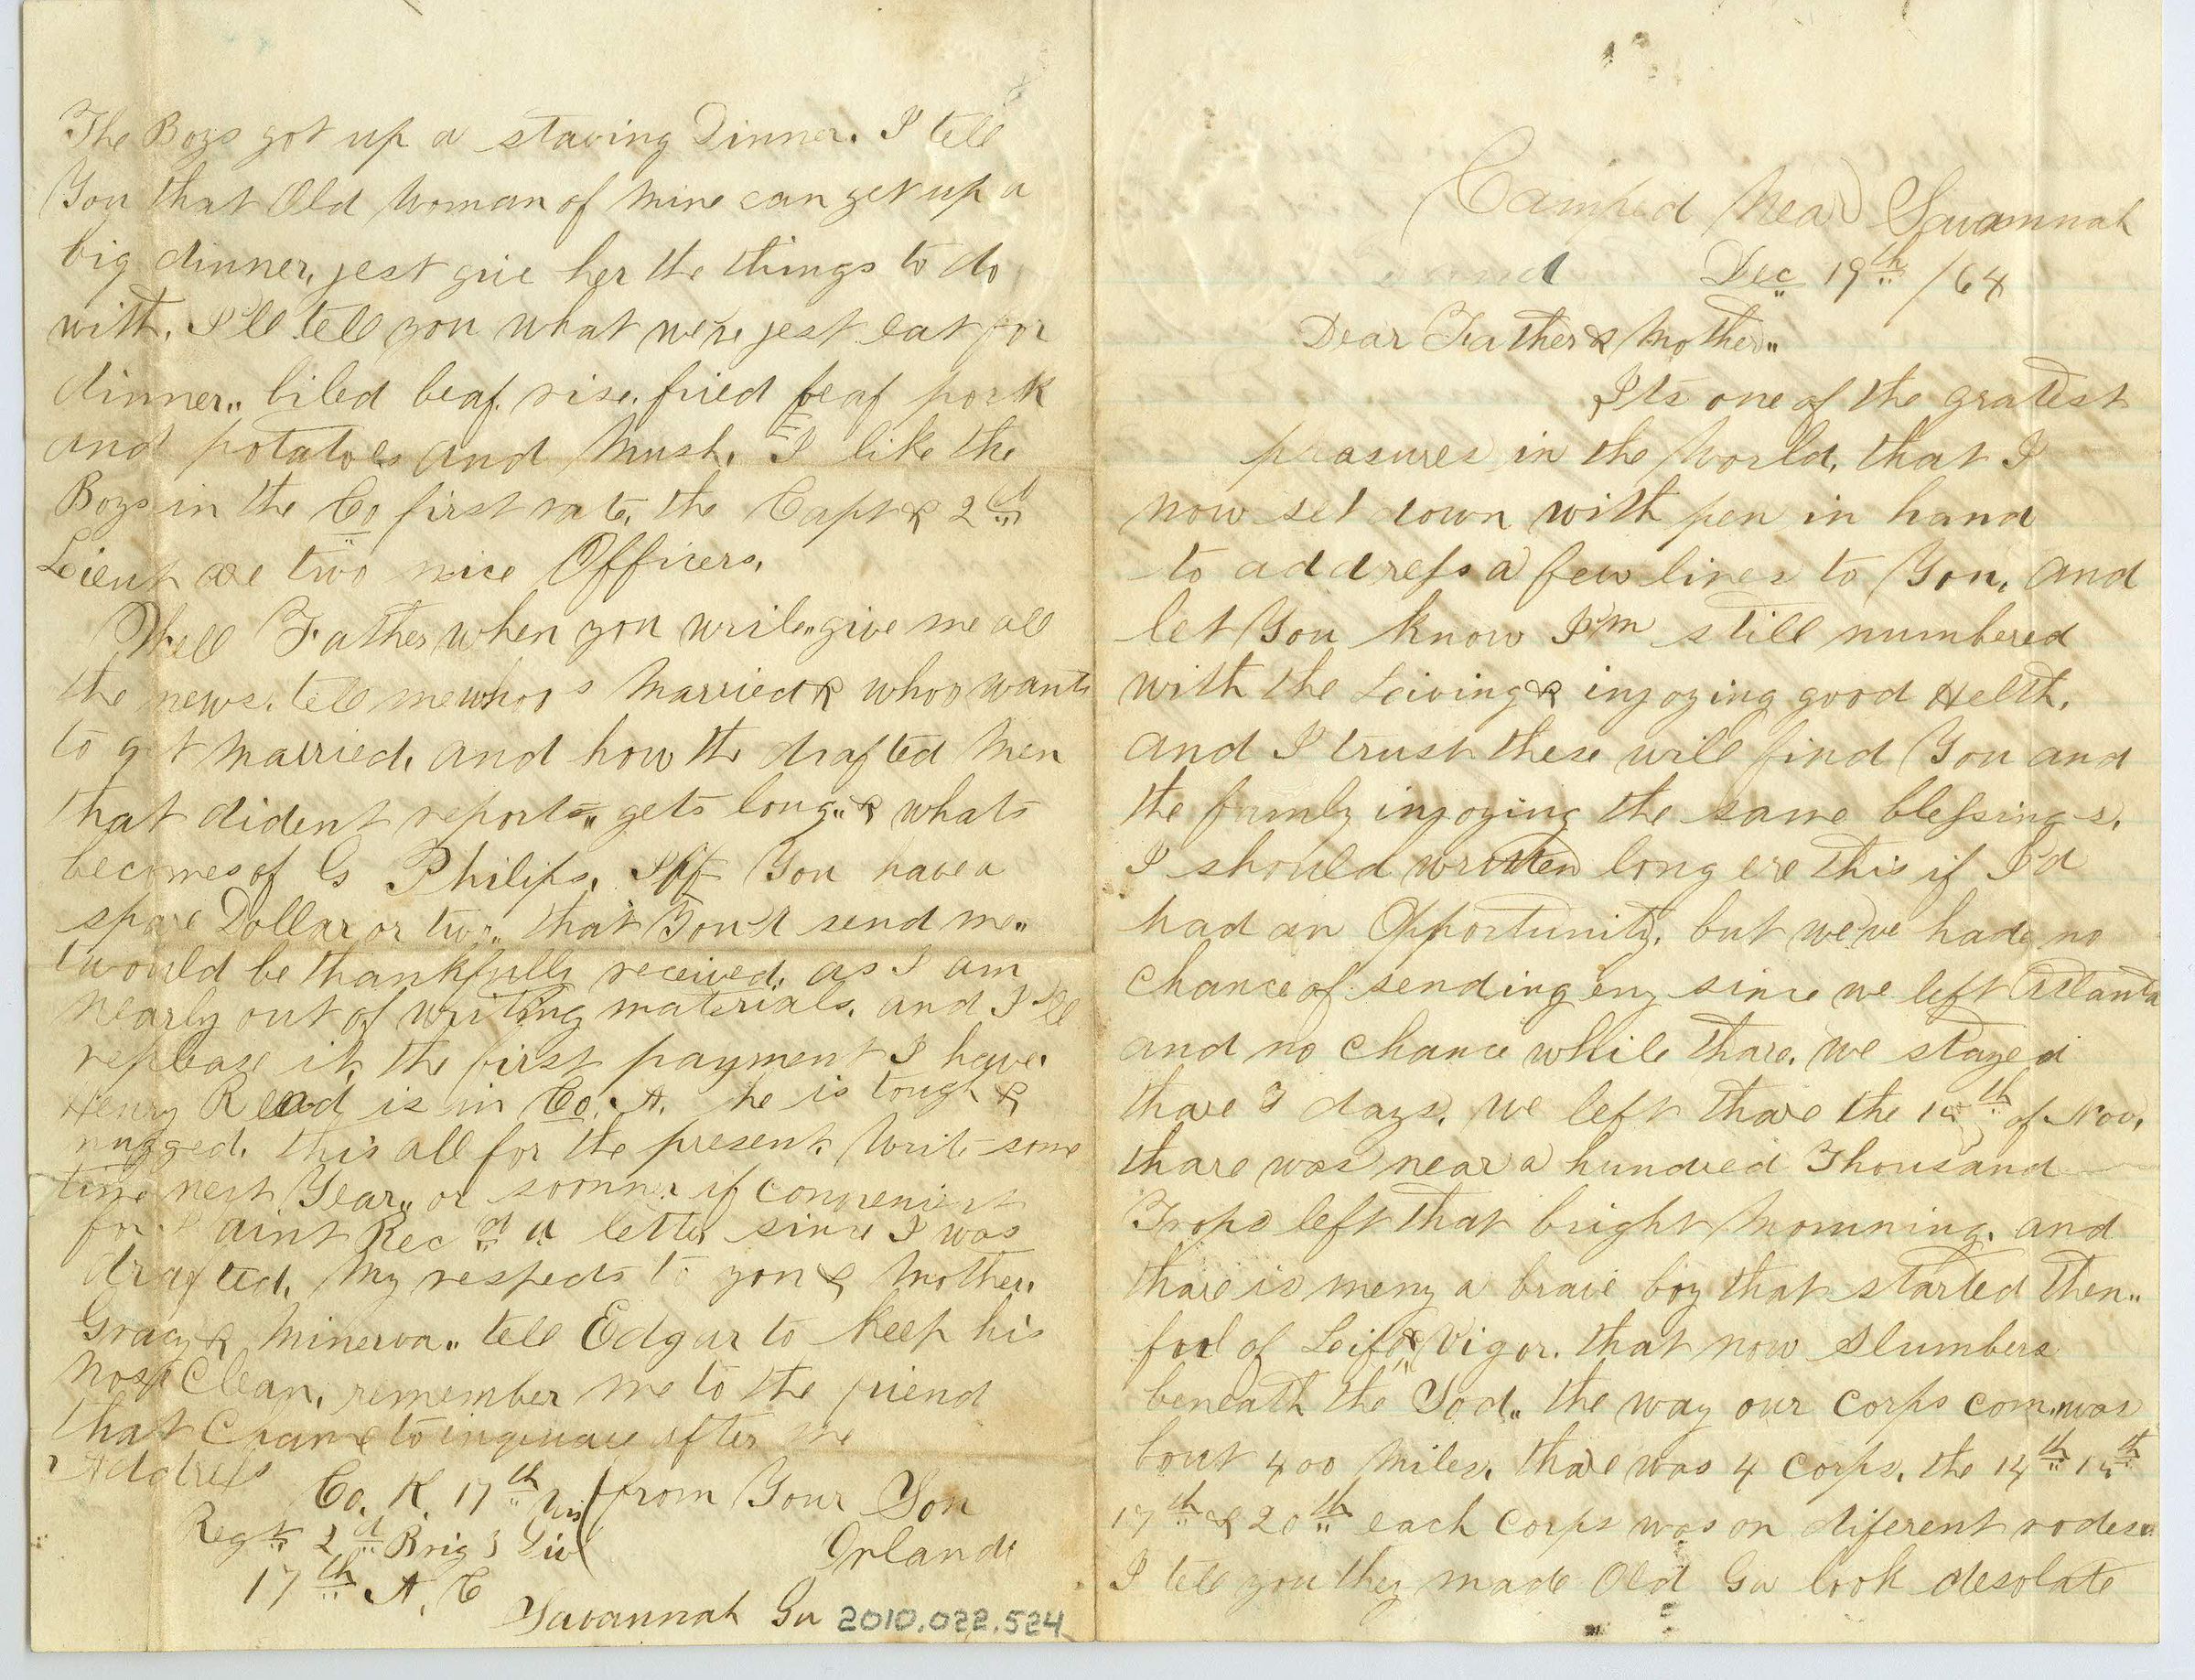 Camped Near Savannah
Dec 19th /64
Dear Father & Mother„
Its one of the gratest
prasures in the World, that I
now set down with pen in hand
to address a few lines to You, and
let You know I'm still numbered
with the Leiving & injoying good Helth,
and I trust these will find You and
the famly injoying the same blessings.
I should written long ere this if I'd
had an Opportunity, but we've had no
chance of sending eny since we left Atlanta
and no chance while thare. We stayed
thare days. We left thare the 15th of Nov,
thare was near a hundred Thousand
Trops left that bright Mornning. and
thare is meny a braie boy that started then„
fool of Leif & Vigor. that now Slumbers
beneath the Sod„ the way our Corps com. was
bout 400 Miles. thare was 4 Corps. the 14th 15th
17th & 20th each Corps was on diferent rodes„
I tell you they made Old Ga look desolate
The Boys got up a staving Dinner. I tell
You that Old Woman of Mine can get up a
big dinner, jest give her the things to do
with. I'll tell you what we've jest eat for
dinner„ biled beaf. rise. fried beaf pork
and potatoes and Mush. I like the
Boys in the Co first rate, the Capt & 2ed
Leieut are two nice Officers.
Well Father when you write„ give me all
the news. tell me whoo's Married & whoo wants
to get Married, and how the drafted Men
that dident report„ gets long„ & whats
becomes of G Philips. Iff You have a
spare Dollar or two„ that You'd send me„
twould be thankfully received, as I am
nearly out of writing materials. and I'll
replase it, the first payment I have.
Henry Read is in Co. A. he is tough &
rugged. this all for the present. Write some
time next Year„ or soonner if convenient
for I aint Rec'd a letter since I was
drafted. My respects to you & Mother.
Gracy & Minerva„ tell Edgar to keep his
nose Clean, remember me to the friend
that Came to inquare after me
Address
Co. K. 17th Wis from Your Son
Regt 2d Brig 3 Div Orlando
17th A, C
Savannah Ga 2010.022.524